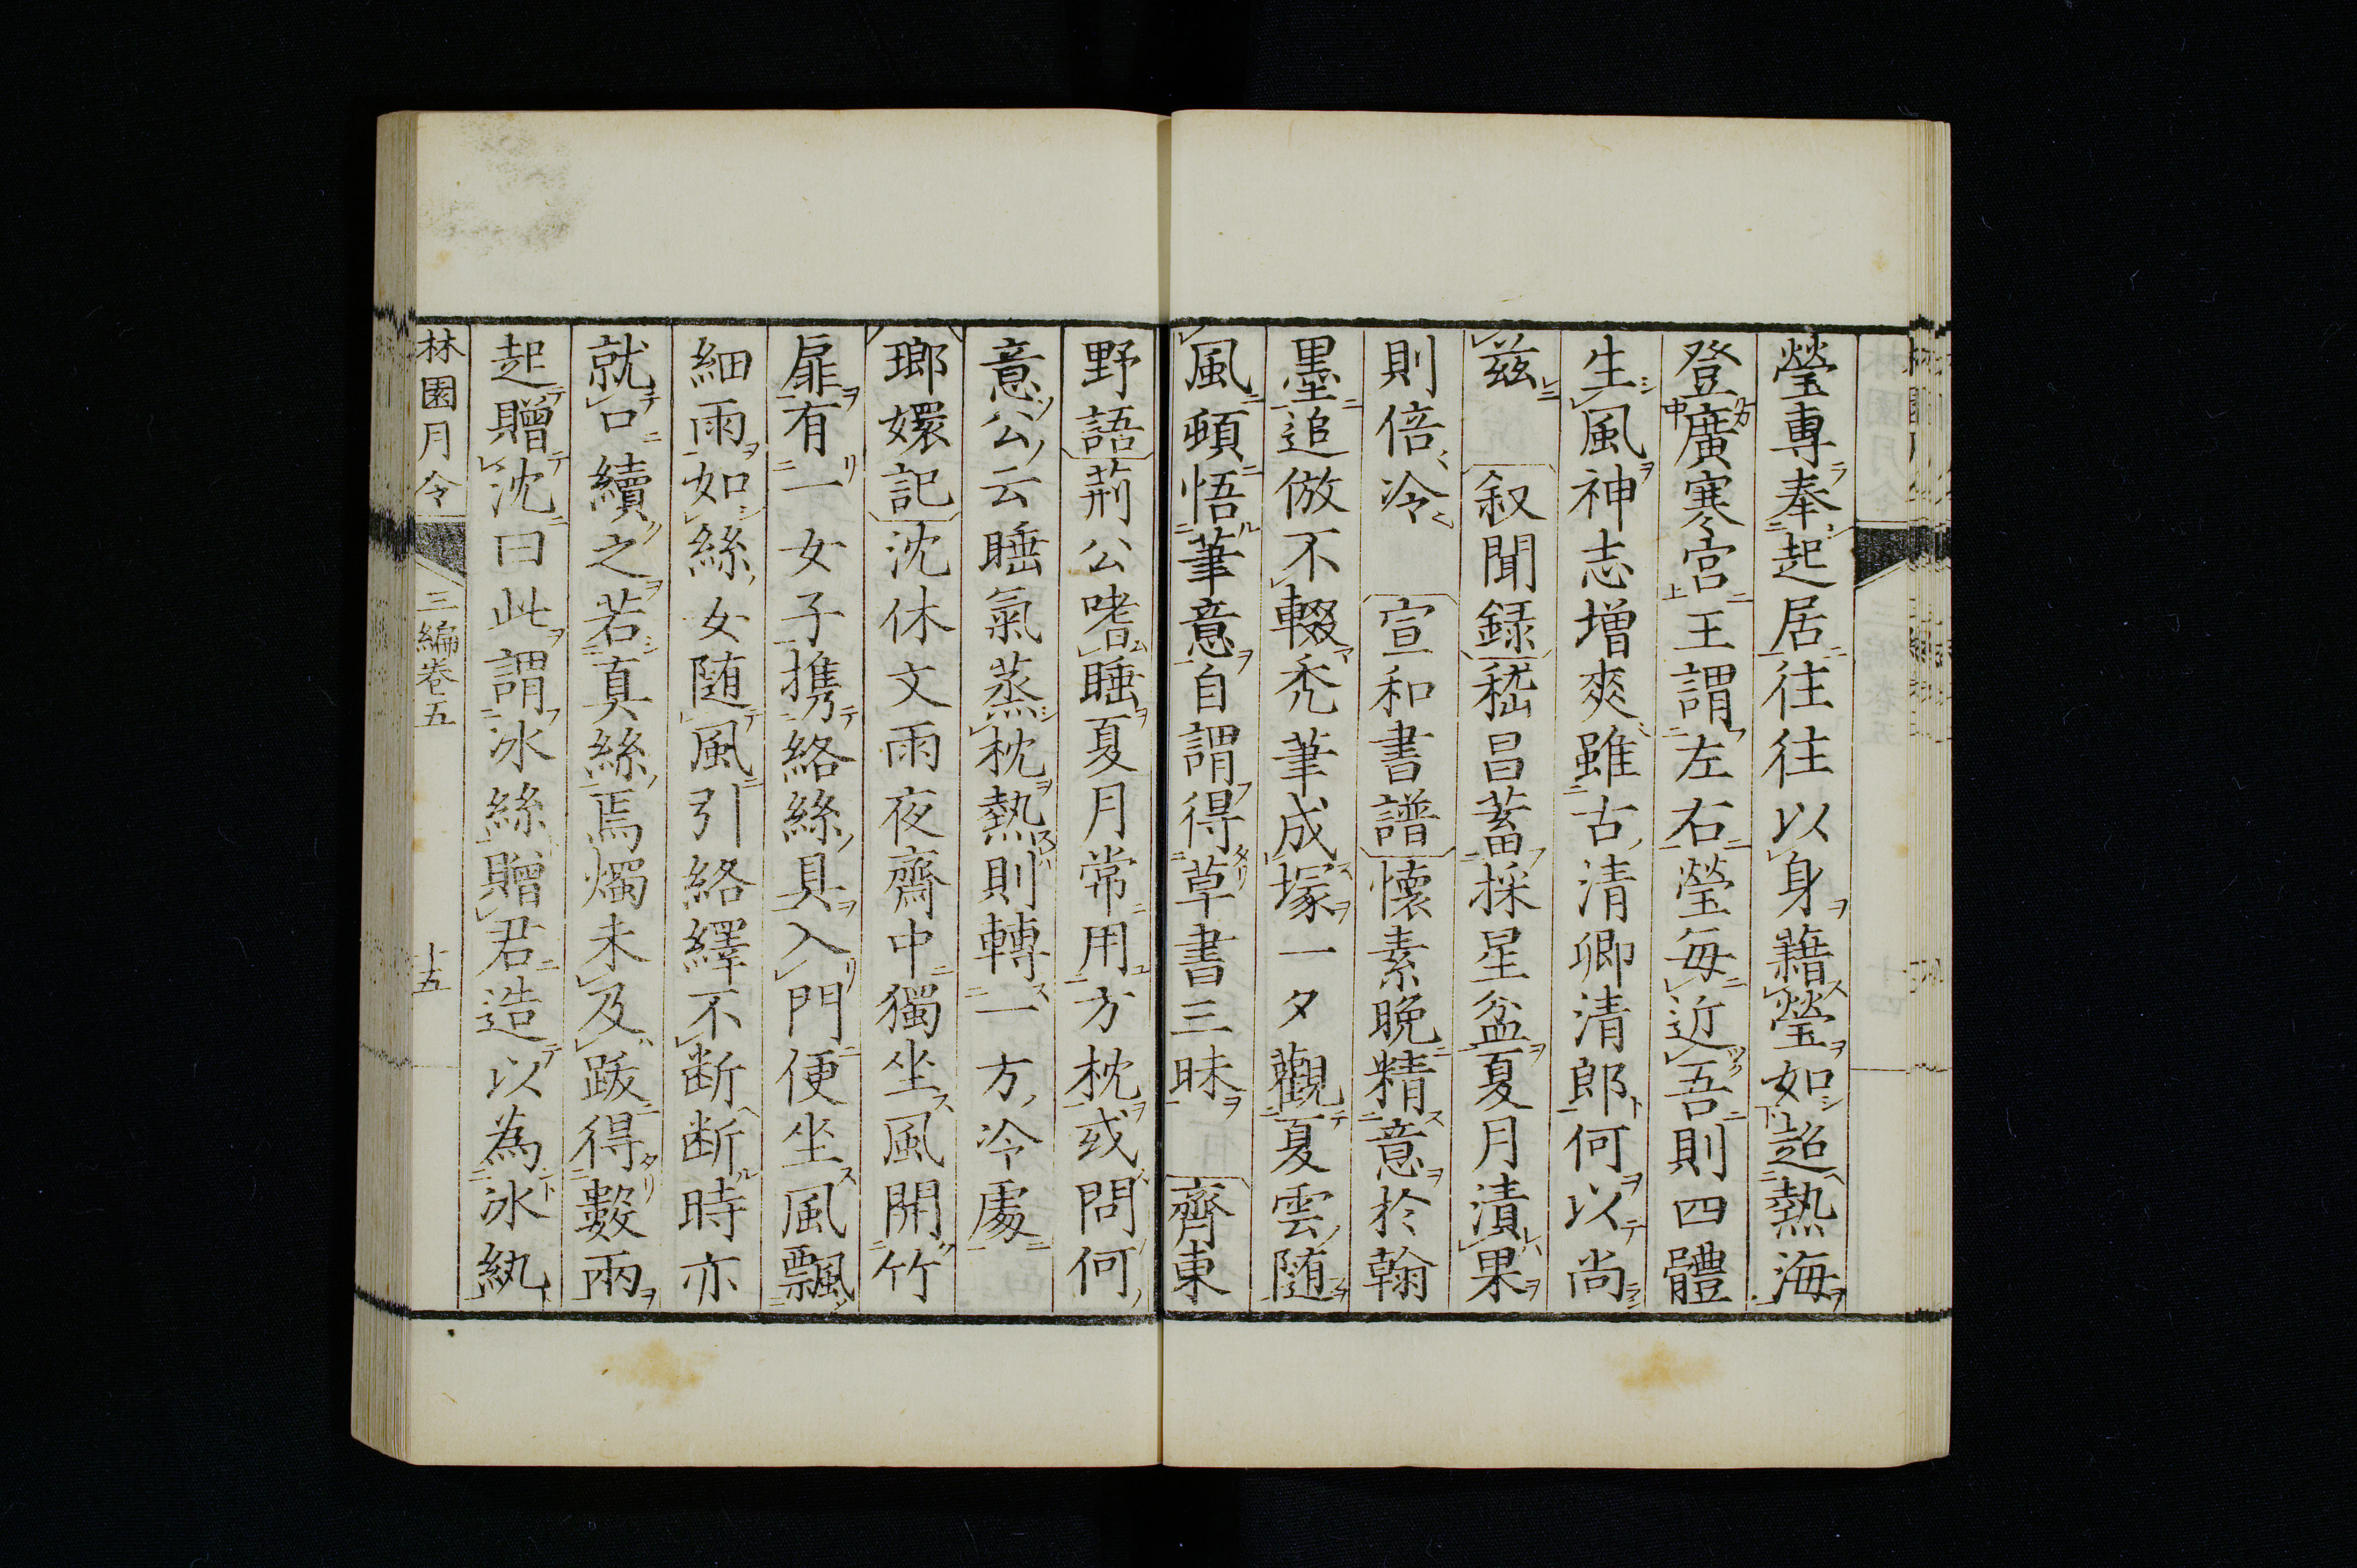 瑩專奉起居往往以身藉瑩如超熱海
登廣寒宮王謂左右瑩每近吾則四體
生風神志增爽雖古清卿清郎何以尚
兹　叙聞録嵇昌蓄採星盆夏月漬果
則倍冷　宣和書譜懷素晚精意於翰
墨追倣不輟秃筆成塚一夕觀夏雲随
風頓悟筆意自謂得草書三昧　齊東
野語荊公嗜睡夏月常用方枕或問何
意公云睡氣蒸枕熱則轉一方冷處
瑯嬛記沈休文雨夜齋中獨坐風開竹
扉有一女子携絡絲具入門便坐風飄
細雨如絲女随風引絡繹不断断時亦
就口續之若真絲焉燭未及跋得數兩
起贈沈曰此謂冰絲贈君造以為冰紈
林園月令　三編卷五　十五